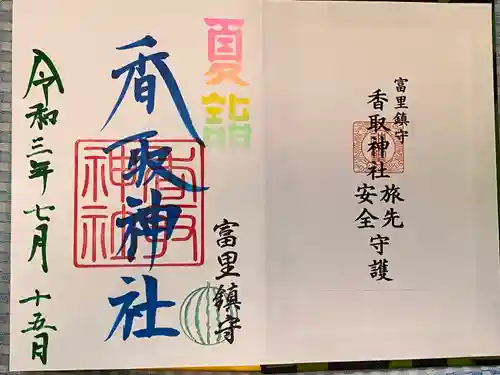 富里鎮守
香取神社旅先
安全守護
夏詣
香取神社
香取神社
富里鎮守
令和三年七月十五日